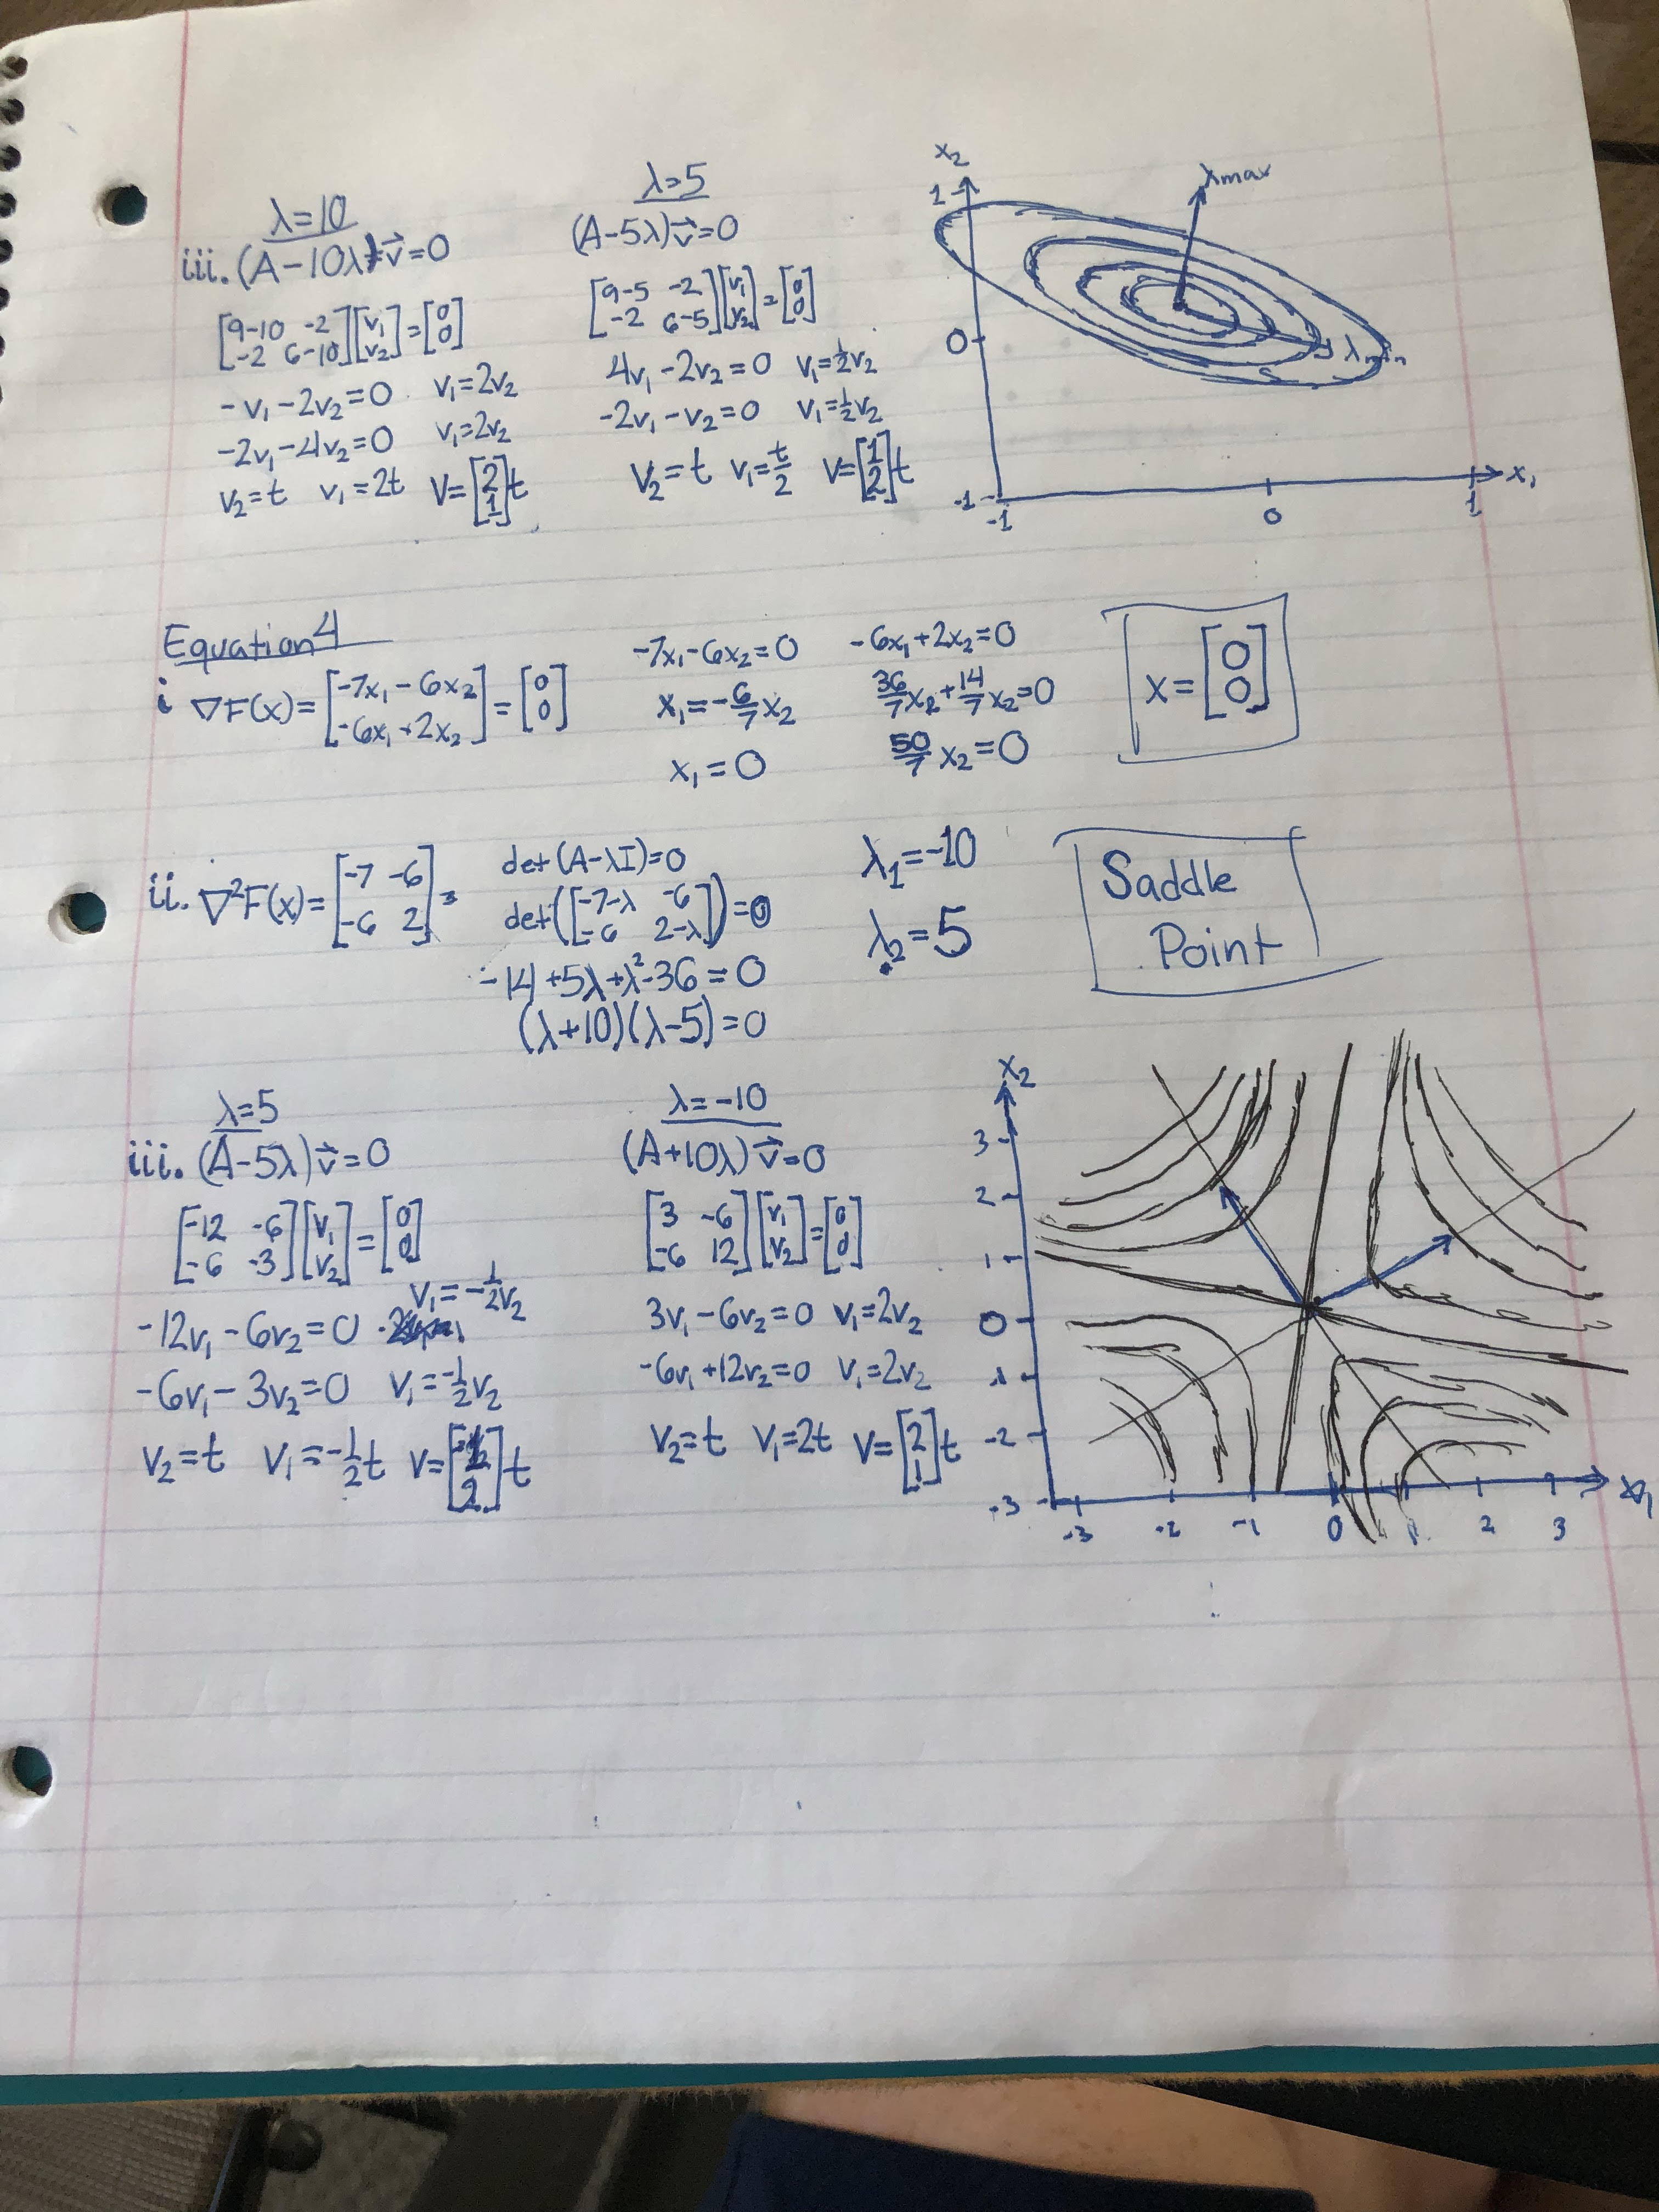 λ=10
iii. (A-10λ)v⃗=0
[9-10 -2; -2 6-10][v₁; v₂]=[0; 0]
-v₁-2v₂=0 v₁=2v₂
-2v₁-4v₂=0 v₁=2v₂
v₂=t v₁=2t V=[2; 1]t
λ=5
(A-5λ)v⃗=0
[9-5 -2; -2 6-5][v₁; v₂]=[0; 0]
4v₁-2v₂=0 v₁=½v₂
-2v₁-v₂=0 v₁=½v₂
V₂=t v₁=t/2 V=[1; 2]t
x₂
λmax
1
0
λmin
-1
-1 0 1
x₁
Equation 4
i ∇F(x)=[-7x₁-6x₂; -6x₁+2x₂]=[0; 0]
-7x₁-6x₂=0
x₁=-6/7x₂
x₁=0
-6x₁+2x₂=0
36/7x₂+14/7x₂=0
50/7x₂=0
x=[0; 0]
ii. ∇²F(x)=[-7 -6; -6 2]
det(A-λI)=0
det([-7-λ -6; -6 2-λ])=0
-14+5λ+λ²-36=0
(λ+10)(λ-5)=0
λ₁=-10
λ₂=5
Saddle
Point
λ=5
iii. (A-5λ)v⃗=0
[-12 -6; -6 -3][v₁; v₂]=[0; 0]
v₁=-½v₂
-12v₁-6v₂=0
-6v₁-3v₂=0 v₁=-½v₂
v₂=t v₁=-½t
λ=-10
(A+10λ)v⃗=0
[3 -6; -6 12][v₁; v₂]=[0; 0]
3v₁-6v₂=0 v₁=2v₂
-6v₁+12v₂=0 v₁=2v₂
v₂=t v₁=2t V=[2; 1]t
x₂
3
2
1
0
-2
-3
-3 -2 -1 0 1 2 3